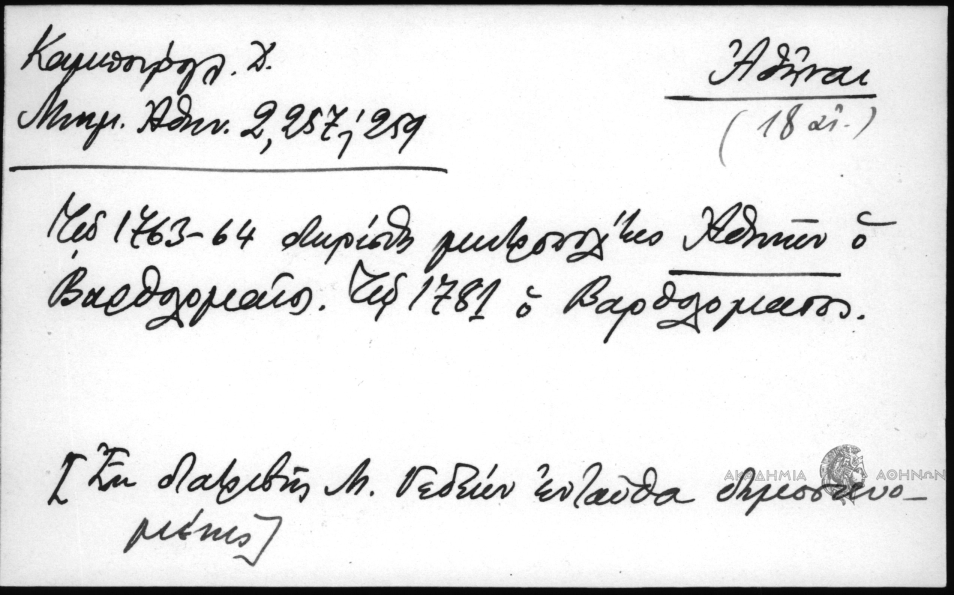 Καμπούρογλ. Δ.
Μνημ. Ἀθην. 2, 257, 259
Ἀθῆναι
(18 αἰ.)
Τῷ 1763-64 διῃρέθη μητροπολίτης Ἀθηνῶν ὁ
Βαρθολομαῖος. Τῷ 1781 ὁ Βαρθολομαῖος.
[Ἐκ διατριβῆς Μ. Γεδεὼν ἐνταῦθα δημοσιευο-
μένης]
ΑΚΑΔΗΜΙΑ ΑΘΗΝΩΝ